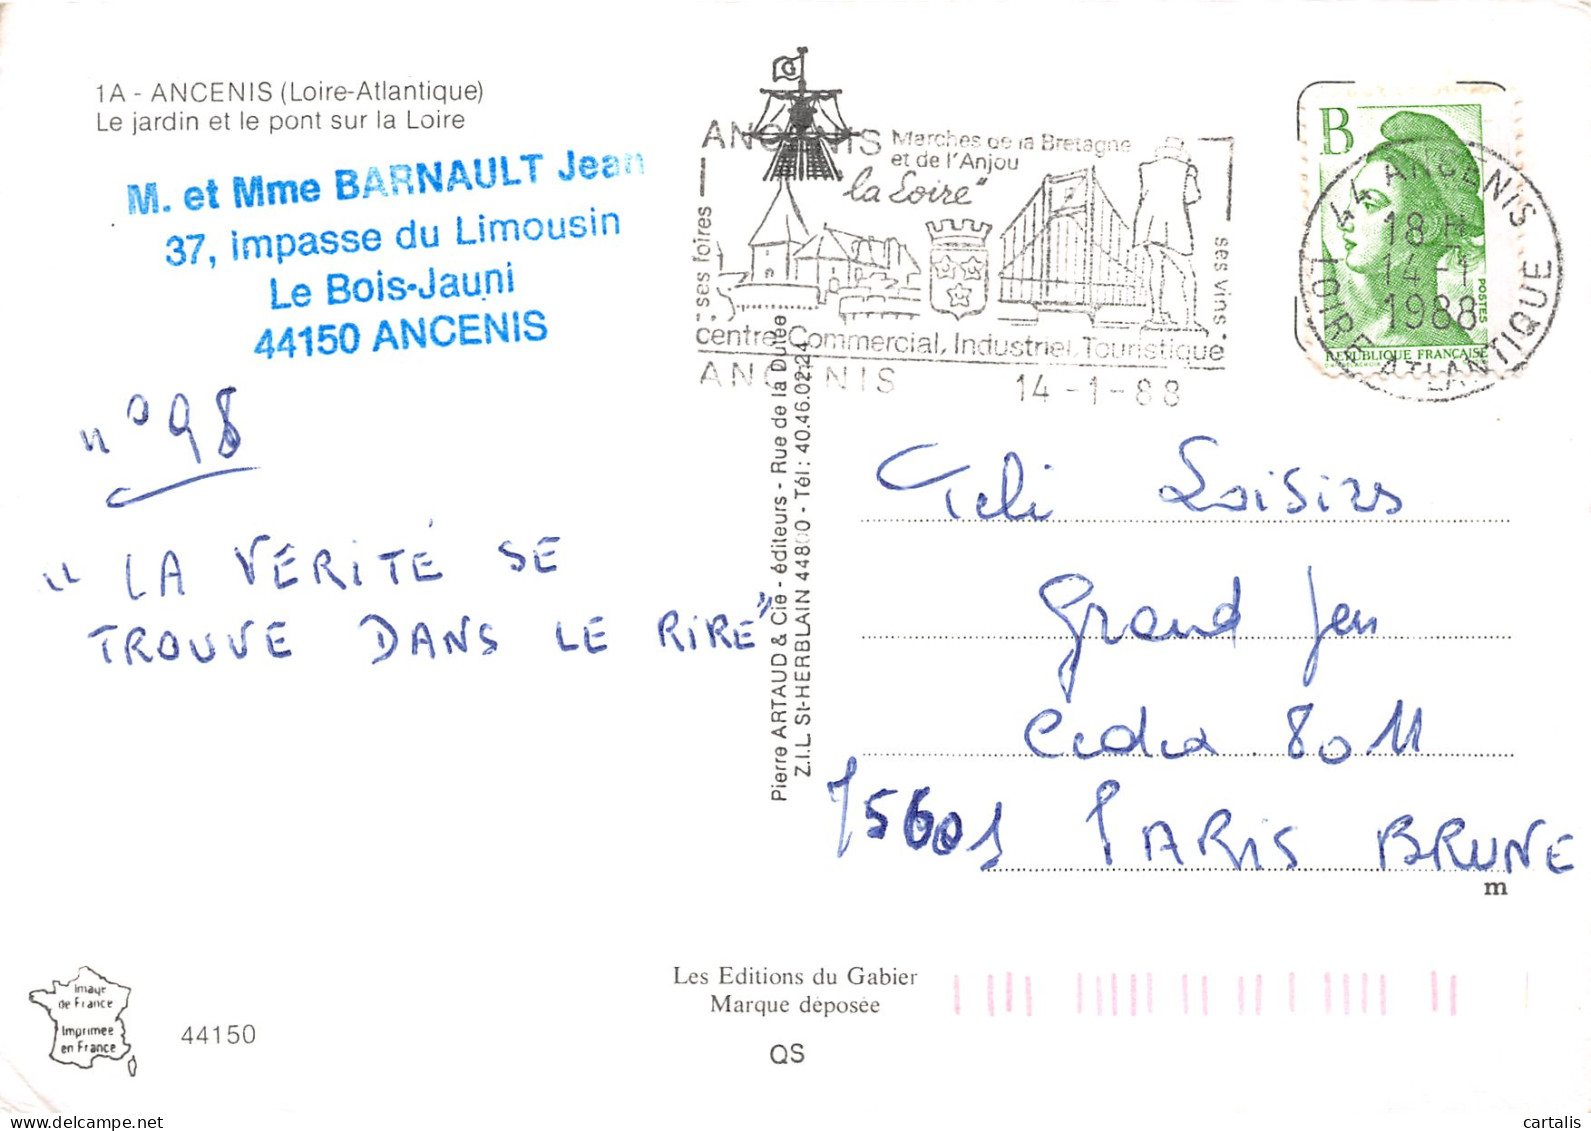 1A - ANCENIS (Loire-Atlantique)
Le jardin et le pont sur la Loire
M. et Mme BARNAULT Jean
37, impasse du Limousin
Le Bois-Jauni
44150 ANCENIS
n° 98
" LA VÉRITÉ SE
TROUVE DANS LE RIRE"
G
ANCENIS Marches de la Bretagne
et de l'Anjou
"la Loire"
ses foires
ses vins
Centre Commercial, Industriel, Touristique
ANCENIS 14 -1-88
B
POSTES
REPUBLIQUE FRANÇAISE
44 ANCENIS
18 H
14 -1
1988
LOIRE ATLANTIQUE
Pierre ARTAUD & Cie - éditeurs - Rue de la Dutée
Z.I.L. St-HERBLAIN 44800 - Tél : 40.46.02.24
Teli Loisirs
grand Jeu
Cedex 80 11
75601 PARIS BRUNE
m
Image
de France
Imprimée
en France
44150
Les Editions du Gabier
Marque déposée
QS
cartalis
www.delcampe.net